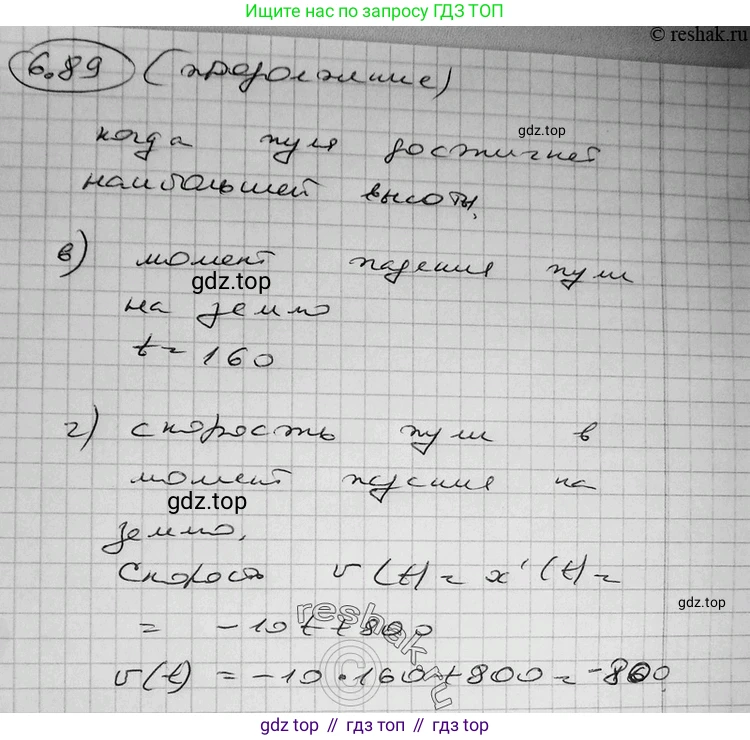 Ищите нас по запросу ГДЗ ТОП
© reshak.ru
6.89 (продолжение)
gdz.top
когда пуля достигнет
наибольшей высоты.
в) момент падения пули
gdz.top
на землю
t = 160
г) скорость пули в
момент падения на
gdz.top
землю.
Скорость v(t) = x'(t) =
gdz.top
= -10t + 800
reshak.ru
©
v(t) = -10·160 + 800 = -800
гдз.топ // gdz.top // гдз.топ